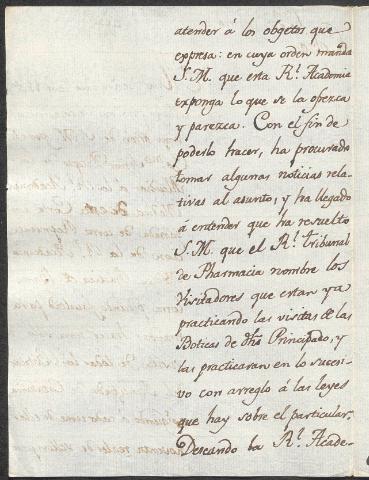 atender á los obgetos que
expresa: en cuya orden manda
S. M. que esta Rl. Academia
exponga lo que se la ofrezca
y parezca. Con el fin de
poderlo hacer, ha procurado
tomar algunas noticias rela-
tivas al asunto, y ha llegado
á entender que ha resuelto
S. M. que el Rl. Tribunal
de Pharmacia nombre los
Visitadores que estan ya
practicando las visitas de las
Boticas de dho Principado, y
las practicaran en lo sucesi-
vo con arreglo á las leyes
que hay sobre el particular.
Deseando la Rl. Acade-